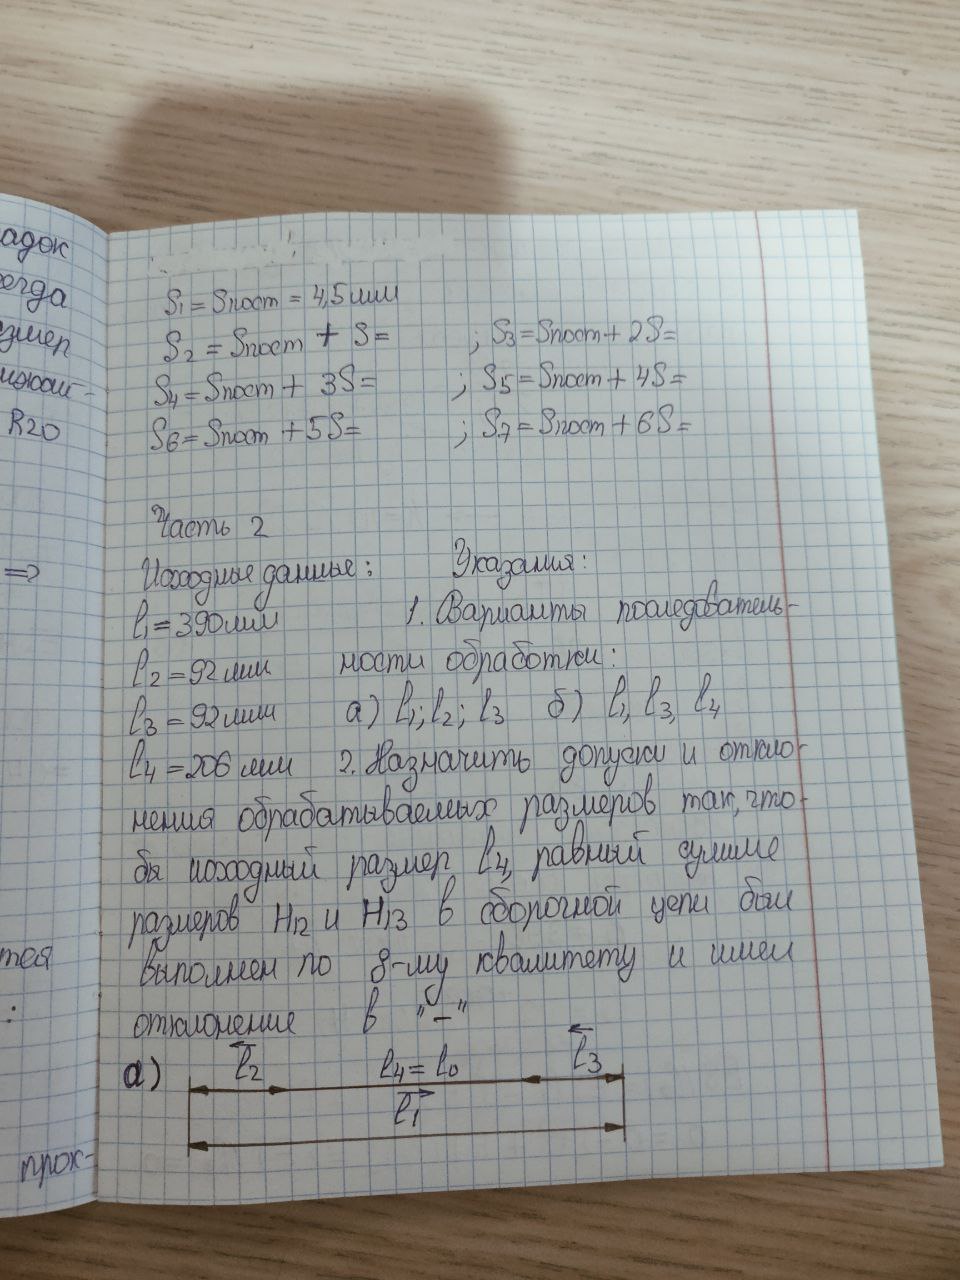 адок
егда
змер
R20
=>
тся
:
прок-
S1 = Sпост = 4,5 мм
S2 = Sпост + S= ; S3 = Sпост + 2S=
S4 = Sпост + 3S= ; S5 = Sпост + 4S=
S6 = Sпост + 5S= ; S7 = Sпост + 6S=
Часть 2
Исходные данные: Указания:
l1 = 390 мм 1. Варианты последователь-
l2 = 92 мм ности обработки:
l3 = 92 мм а) l1; l2; l3 б) l1, l3, l4
l4 = 206 мм 2. Назначить допуски и откло-
нения обрабатываемых размеров так, что-
бы исходный размер l4, равный сумме
размеров H12 и H13 в сборочной цепи был
выполнен по 8-му квалитету и имел
отклонение в "–"
а) l2 l4 = l0 l3
l1